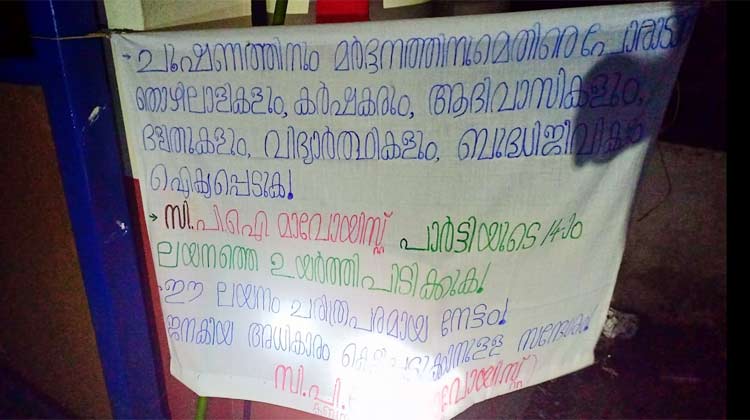 → ചൂഷണത്തിനും മർദ്ദനത്തിനുമെതിരെ പോരാടാൻ
തൊഴിലാളികളും, കർഷകരും, ആദിവാസികളും,
ദളിതുകളും, വിദ്യാർത്ഥികളും, ബുദ്ധിജീവികളും
ഐക്യപ്പെടുക!
→ സി.പി.ഐ മാവോയിസ്റ്റ് പാർട്ടിയുടെ 14-ാം
ലയനത്തെ ഉയർത്തിപിടിക്കുക!
ഈ ലയനം ചരിത്രപരമായ നേട്ടം!
ജനകീയ അധികാരം
സി.പി.